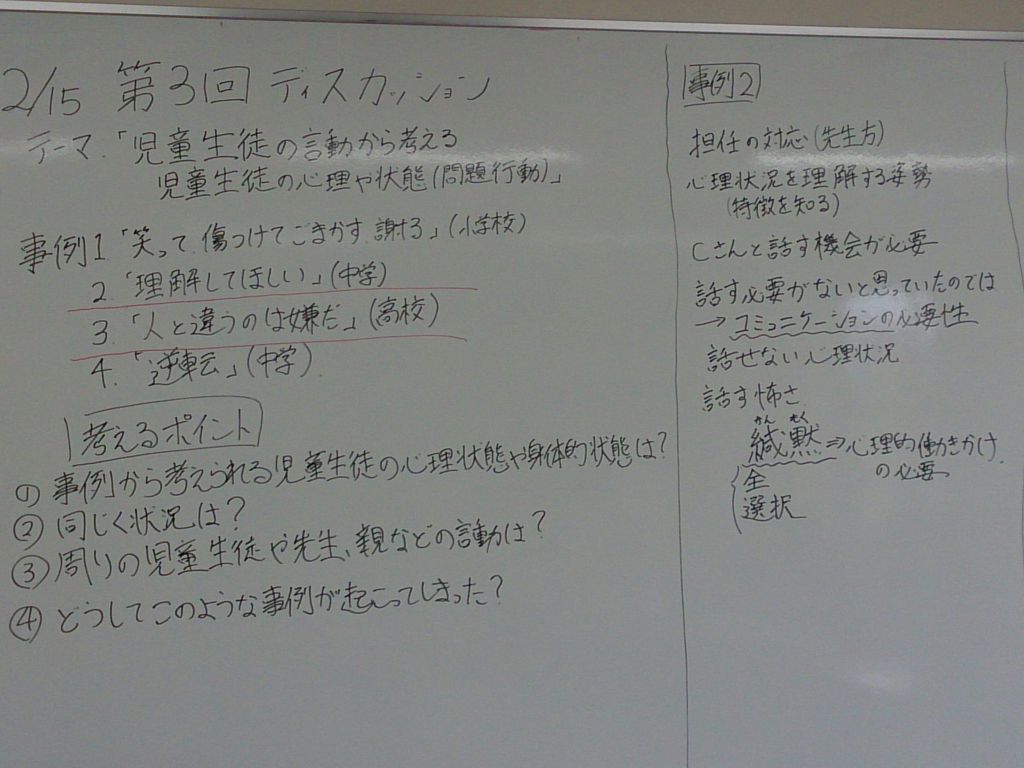 2/15 第3回 ディスカッション
テーマ.「児童生徒の言動から考える
児童生徒の心理や状態(問題行動)」
事例1「笑って 傷つけてごまかす 謝る」(小学校)
2.「理解してほしい」(中学)
3.「人と違うのは嫌だ」(高校)
4.「逆転云」(中学).
考えるポイント
の 事例から考えられる児童生徒の心理状態や身体的状態は?
② 同じく状況は?
③ 周りの児童生徒や先生、親などの言動は?
④ どうしてこのような事例が起こってしまった?
事例2
担任の対応(先生方)
心理状況を理解する姿勢
(特徴を知る)
Cさんと話す機会が必要
話す必要がないと思っていたのでは
→コミュニケーションの必要性
話せない心理状況
話す怖さ
かん もく
緘黙⇒心理的働きかけ
の必要
全
選択